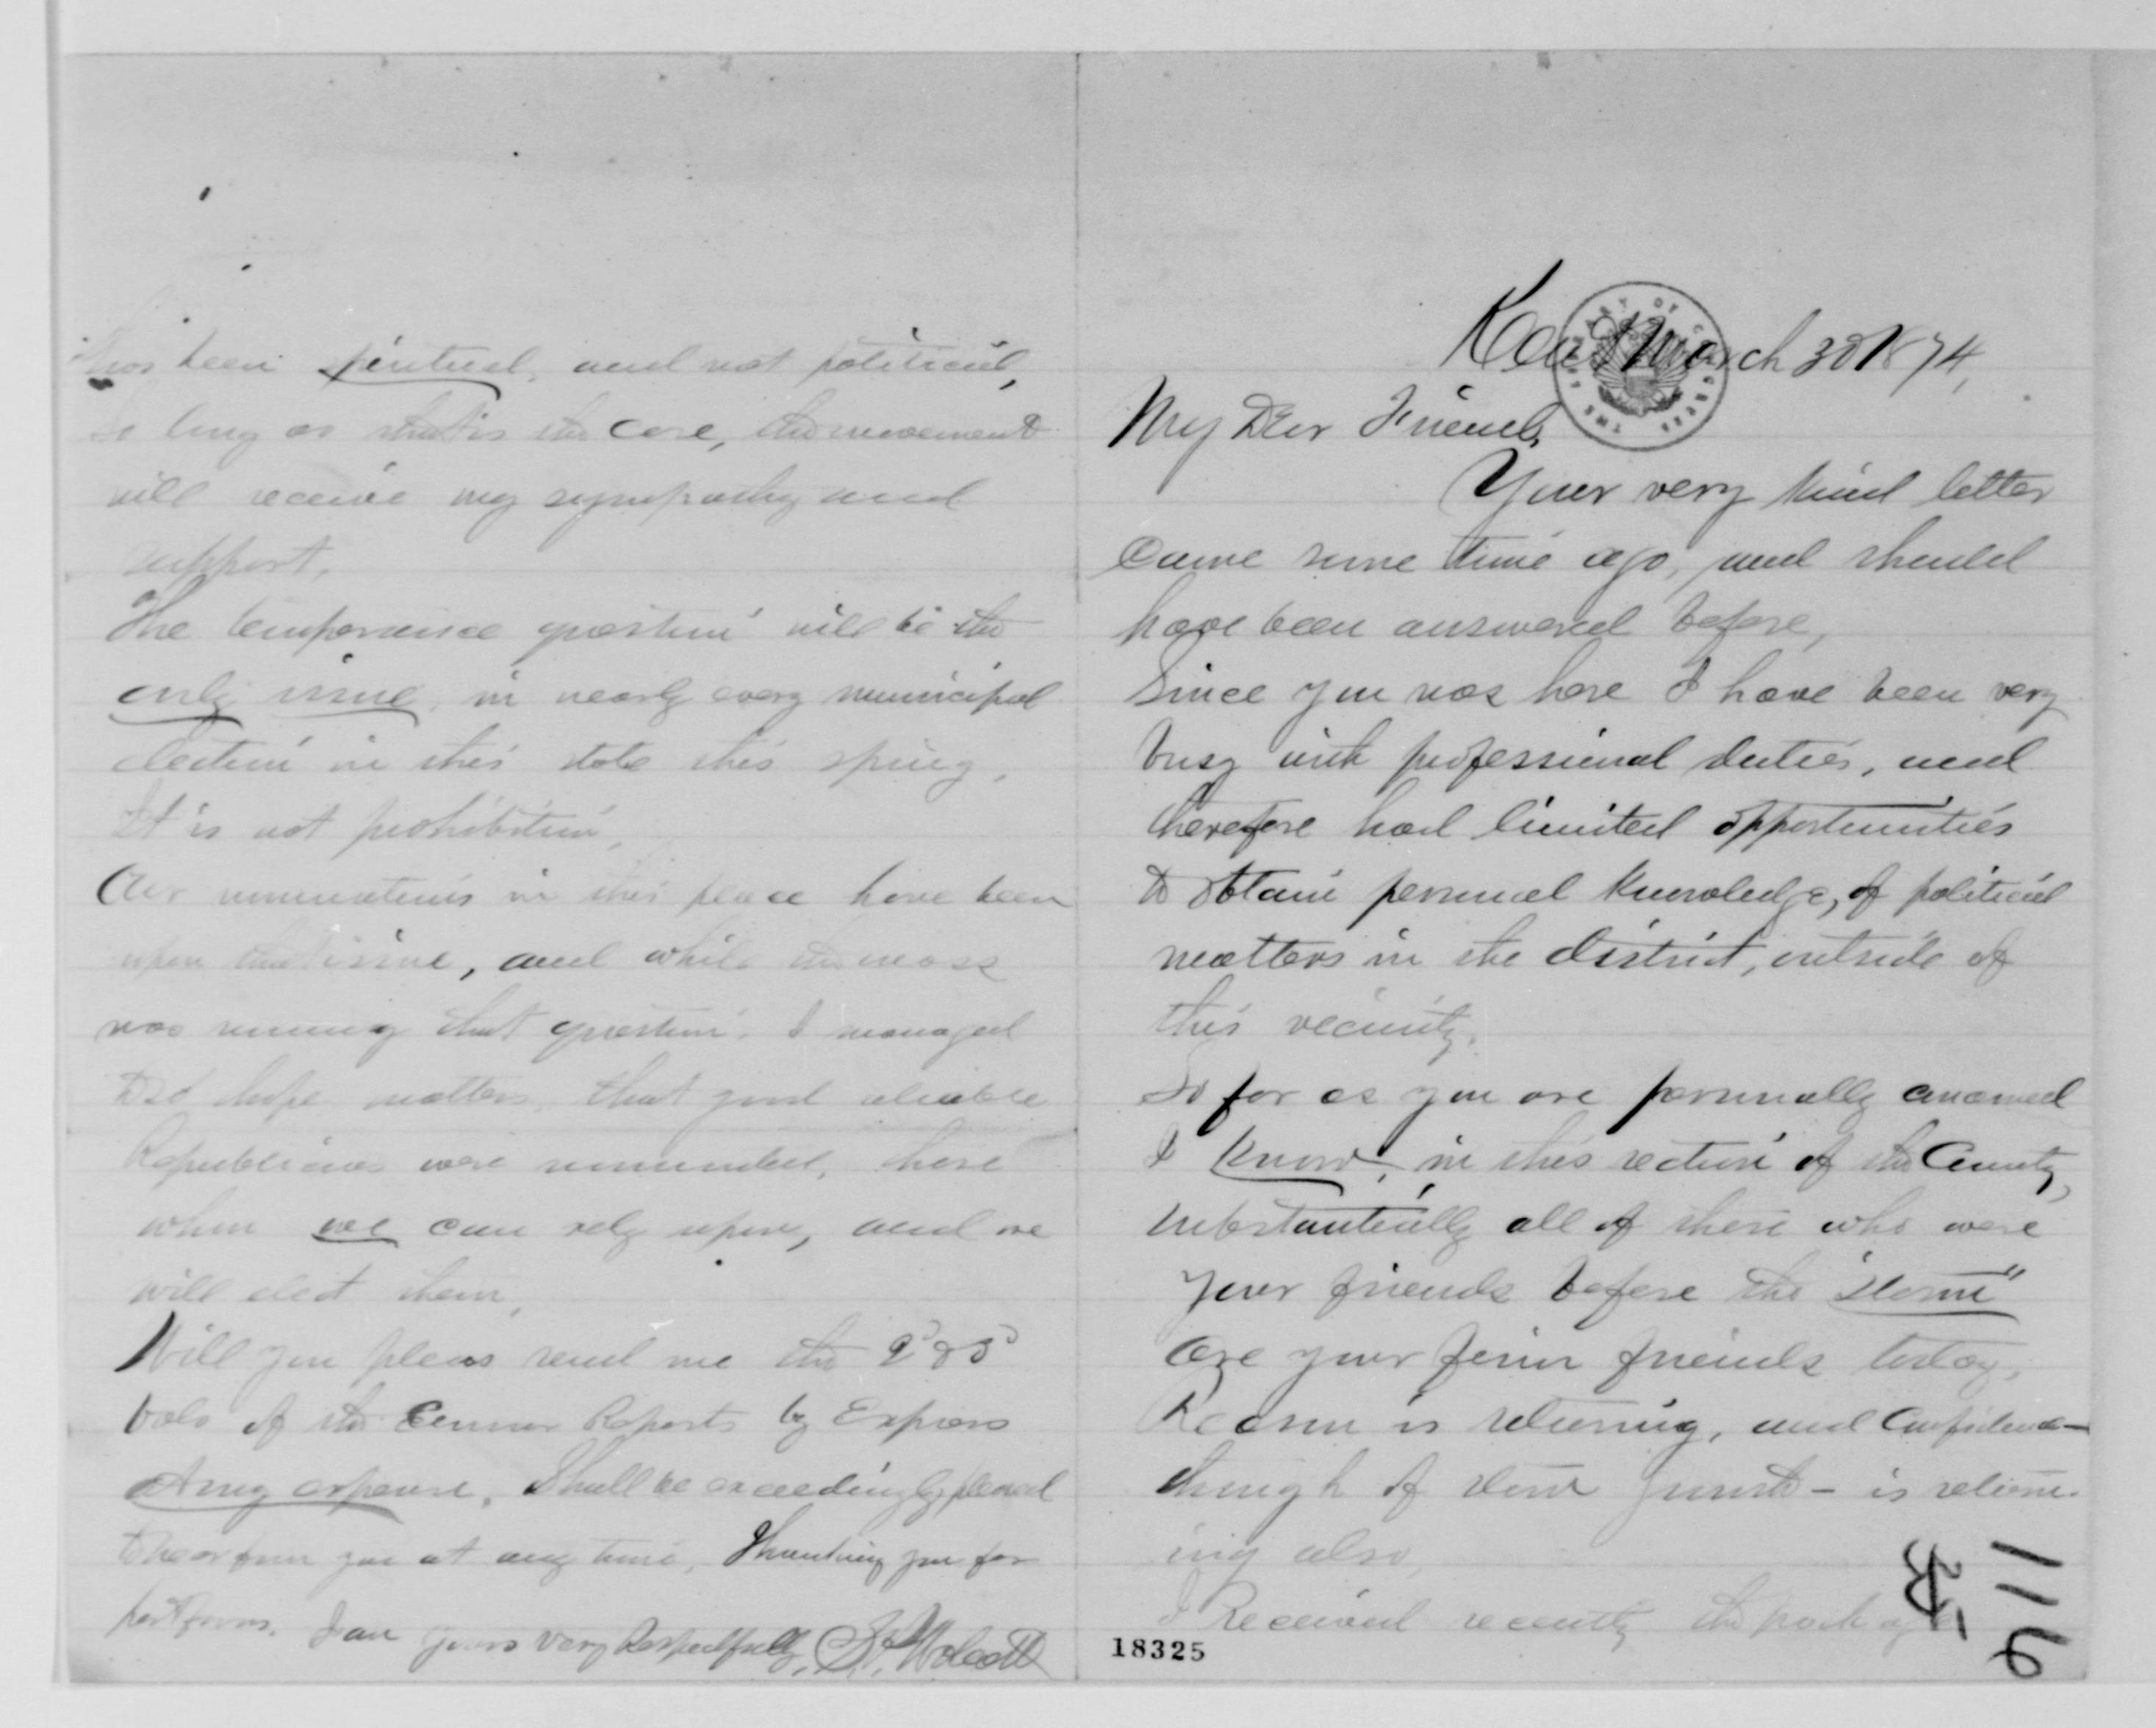 Kent March 30 1874,
My Dear Friend,
Your very kind letter
came some time ago, and should
have been answered before,
Since you was here I have been very
busy with professional duties, and
therefore had limited opportunities
to obtain personal knowledge, of political
matters in the district, outside of
this vicinity.
So far as you are personally concerned
I know, in this section of the County,
substantially all of those who were
your friends before the "storm"
are your firm friends today,
Reason is returning, and Confidence —
though of slow growth — is return-
ing also,
I Received recently the package
18325
116
has been spiritual, and not political,
So long as that is the case, the movement
will receive my sympathy and
support,
The temperance question will be the
only issue, in nearly every municipal
election in this state this spring,
It is not prohibition,
Our nominations in this place have been
upon that issue, and while the mass
was running that question, I managed
to so shape matters, that good reliable
Republicans were nominated, those
whom we can rely upon, and we
will elect them,
Will you pleas send me the 2d & 3d
vols of the Census Reports by Express
at my expense, Shall be exceedingly pleased
to hear from you at any time, Thanking you for
past favors, I am yours very Respectfully, Wolcott